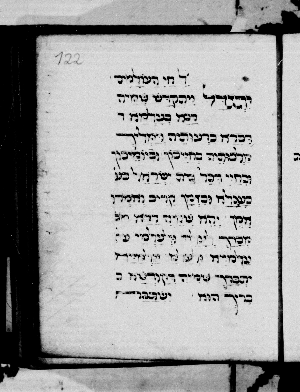 122
ל חי העולמים
יתגדל ויתקדש שמיה
רבא בעלמא ד
דברא כרעותיה וימליך
מלכותיה בחייכון וביומיכון
ובחיי דכל בית ישראל בע
בעגלא ובזמן קריב ואמרו
אמן יהא שמיה רבא מב
מברך לעלם ולעלמי
עלמיא
יתברך שמיה דקודשא ב
בריך הוא